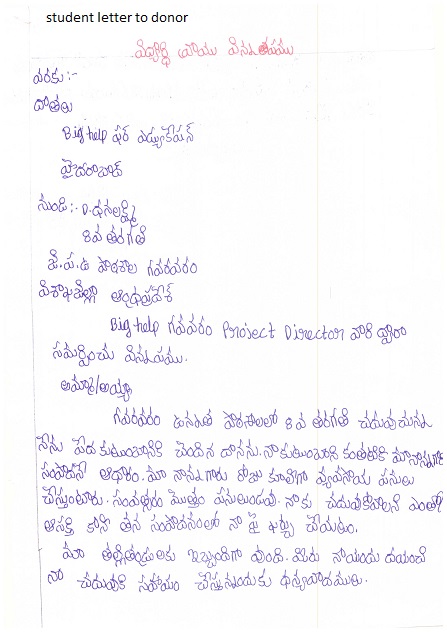 student letter to donor
విద్యార్థి యొక్క విన్నతపము
వరకు:-
దాతలు
Big help ఫర్ ఎడ్యుకేషన్
హైదరాబాద్
నుండి:- D.ధనలక్ష్మి
8వ తరగతి
జి.ప.ఉ పాఠశాల గవరవరం
విశాఖజిల్లా ఆంధ్రప్రదేశ్
Big help గవవరం Project Director వారి ద్వారా
సమర్పించు విన్నపము.
అమ్మా/అయ్యా
గవరవరం ఉన్నత పాఠశాలలో 8వ తరగతి చదువుచున్న
నేను పేద కుటుంబానికి చెందిన దానను. నా కుటుంబానికంతటికి మా నాన్నగారి
సంపాదనే ఆధారం. మా నాన్నగారు రోజు కూలీగా వ్యవసాయ పనులు
చేస్తుంటారు. సంవత్సరం మొత్తం పనులుండవు. నాకు చదువుకోవాలని ఎంతో
ఆసక్తి కాని తన సంపాదనలో నా పై ఖర్చు చేయటం.
మా తల్లితండ్రులకు ఇబ్బందిగా వుంది. మీరు నాయందు దయంచి
నా చదువుకి సహాయం చేస్తున్నందుకు ధన్యవాదములు.